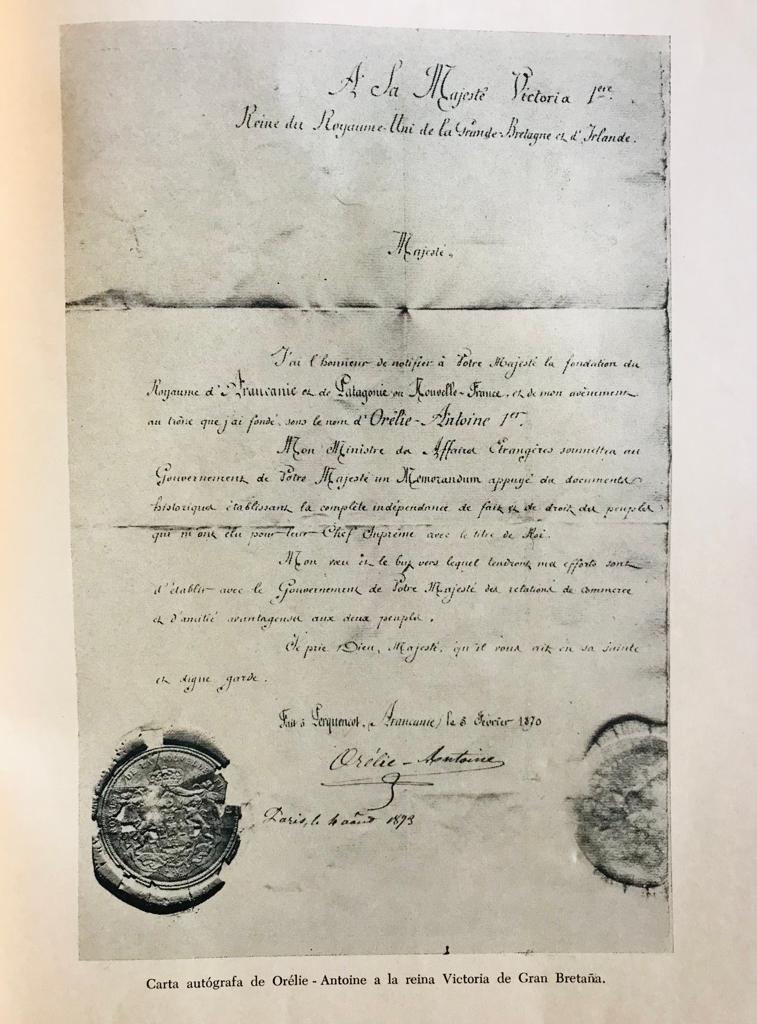 A Sa Majesté Victoria 1ère.
Reine du Royaume-Uni de la Grande-Bretagne et d'Irlande.
Majesté,
J'ai l'honneur de notifier à Votre Majesté la fondation du
Royaume d'Araucanie et de Patagonie ou Nouvelle-France, et de mon avènement
au trône que j'ai fondé, sous le nom d'Orélie-Antoine 1er.
Mon Ministre des Affaires Etrangères soumettra au
Gouvernement de Votre Majesté un Memorandum appuyé de documents
historiques établissant la complète indépendance de fait et de droit des peuples
qui m'ont élu pour leur Chef Suprême avec le titre de Roi.
Mon vœu et le but vers lequel tendront mes efforts sont
d'établir avec le Gouvernement de Votre Majesté des relations de commerce
et d'amitié avantageuses aux deux peuples.
Je prie Dieu, Majesté, qu'il vous ait en sa sainte
et digne garde.
Fait à Araucanie) le 8 Février 1870
Orélie-Antoine
Paris, le 4 août 1873
Carta autógrafa de Orélie - Antoine a la reina Victoria de Gran Bretaña.